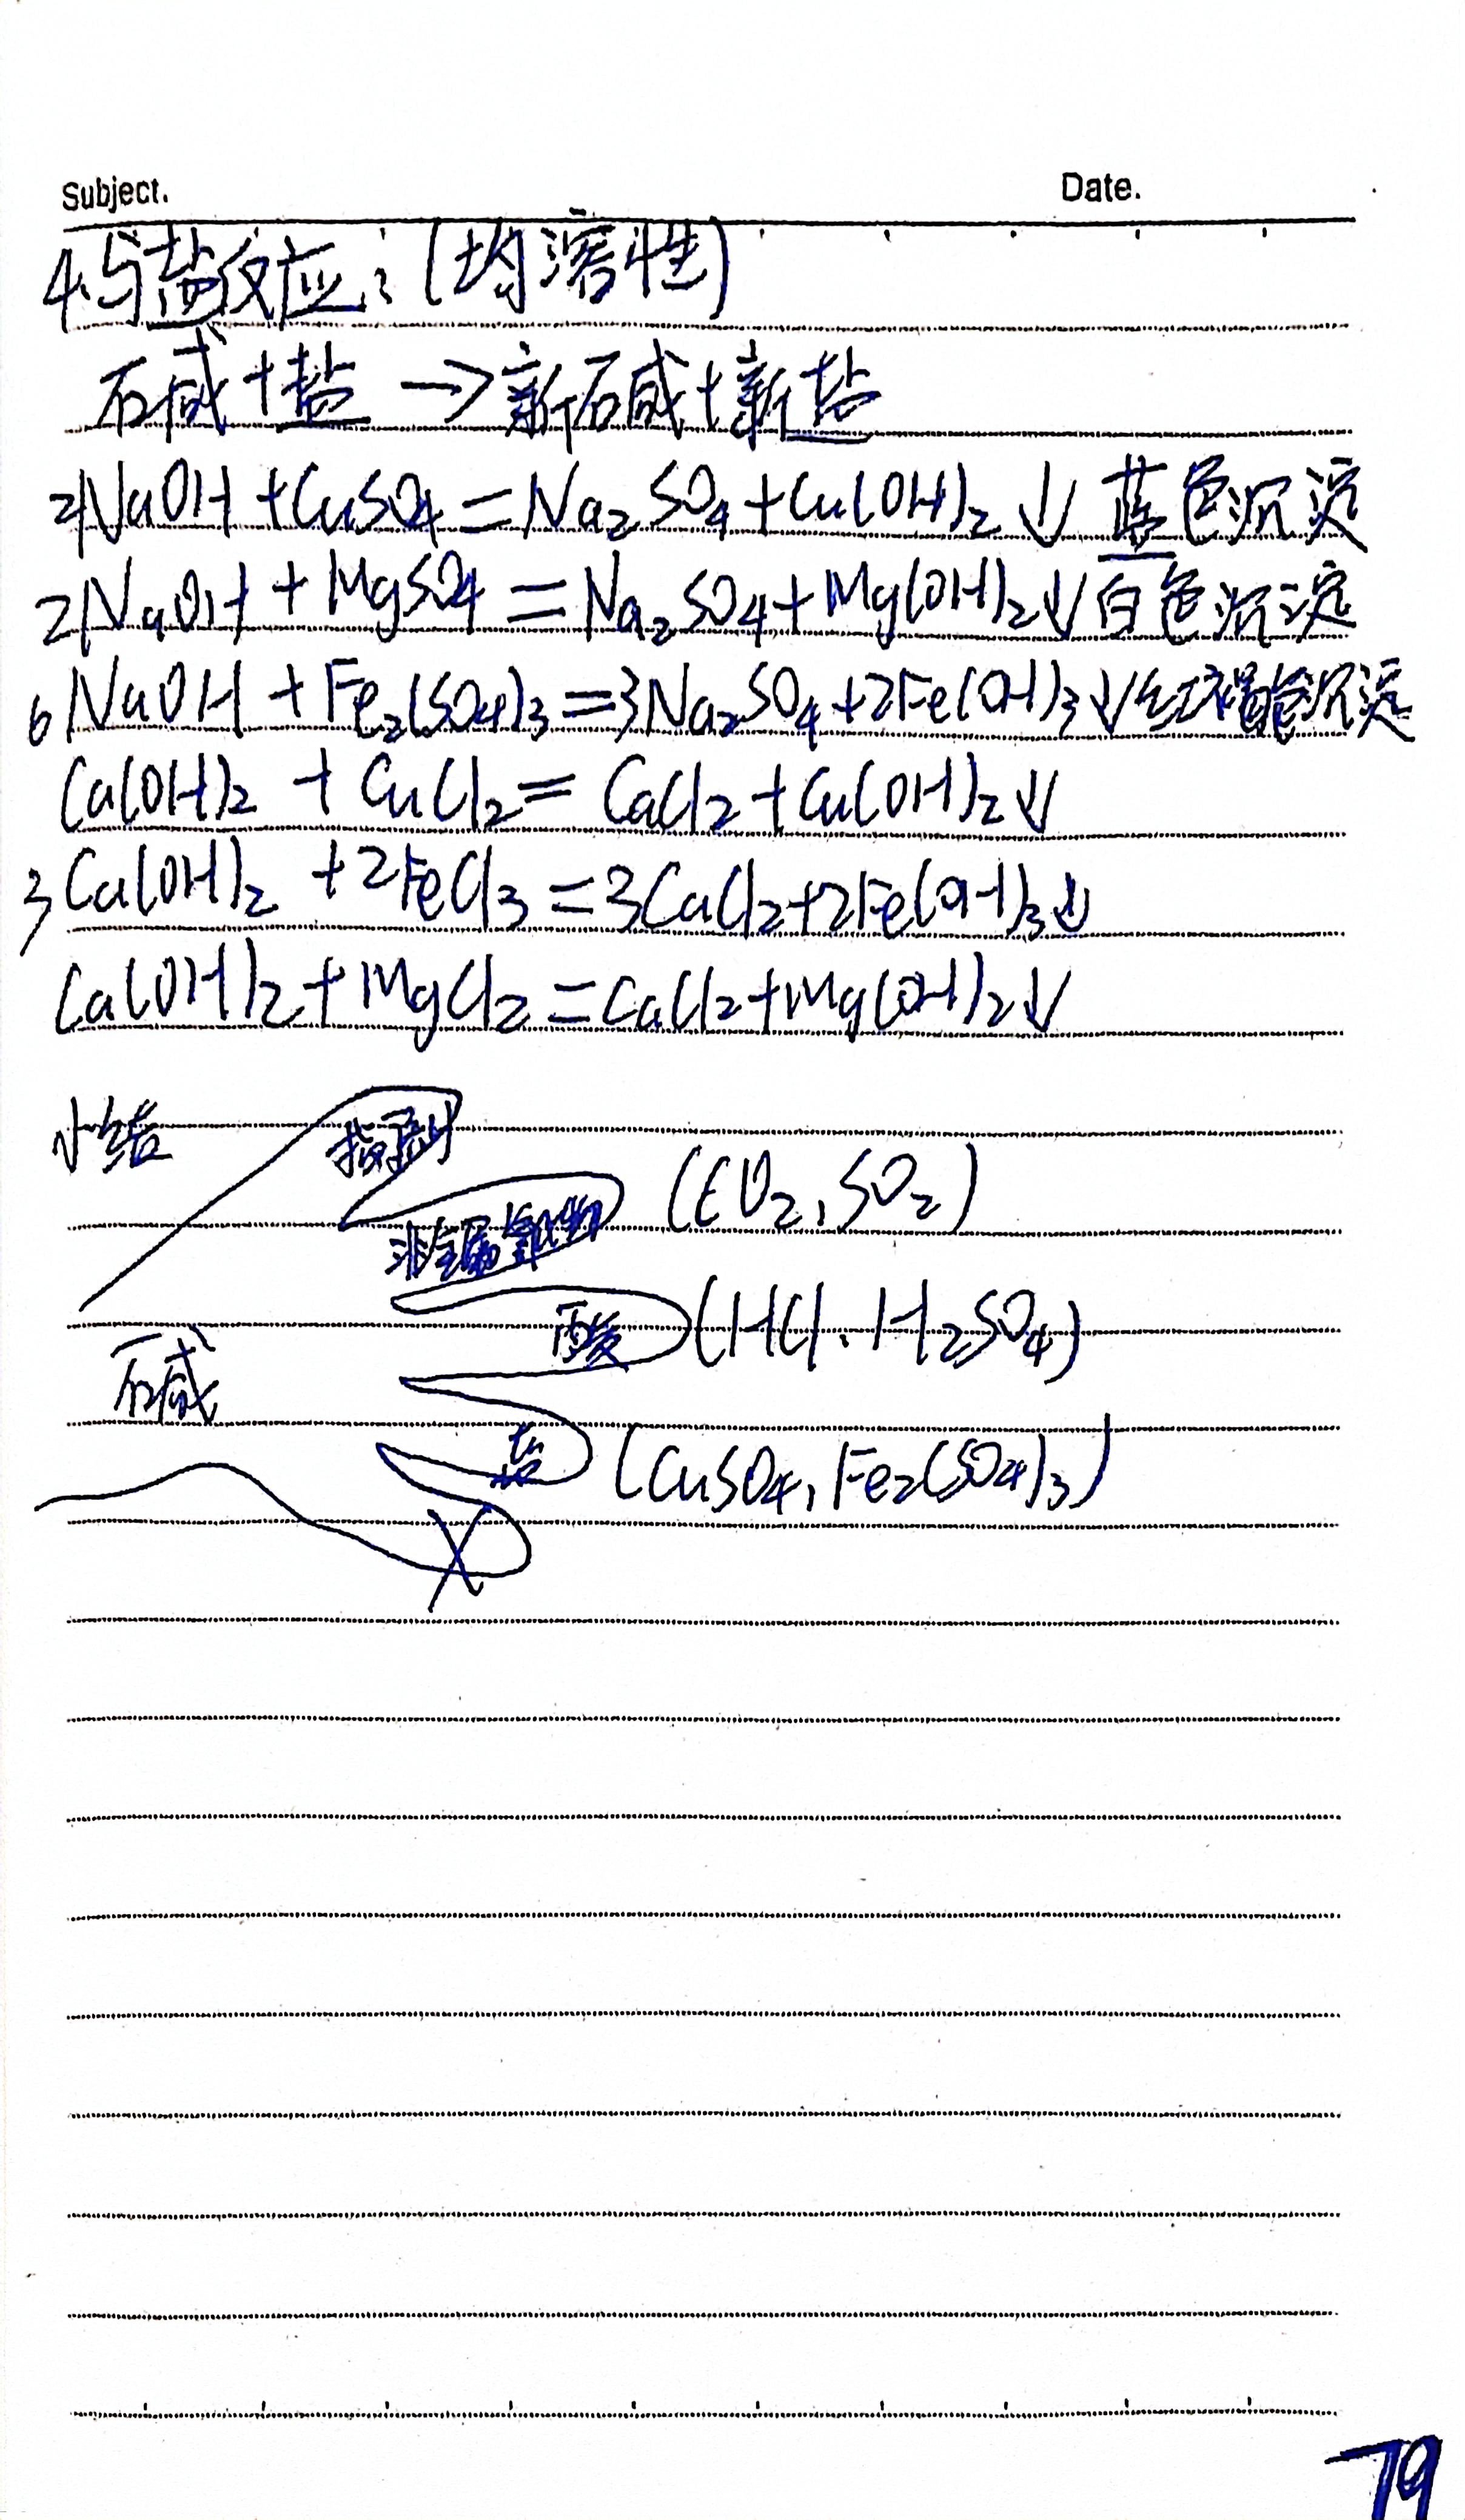 Subject.
Date.
4.与盐反应:(均溶性)
碱+盐→新碱+新盐
2NaOH+CuSO₄=Na₂SO₄+Cu(OH)₂↓蓝色沉淀
2NaOH+MgSO₄=Na₂SO₄+Mg(OH)₂↓白色沉淀
6NaOH+Fe₂(SO₄)₃=3Na₂SO₄+2Fe(OH)₃↓红褐色沉淀
Ca(OH)₂+CuCl₂=CaCl₂+Cu(OH)₂↓
3Ca(OH)₂+2FeCl₃=3CaCl₂+2Fe(OH)₃↓
Ca(OH)₂+MgCl₂=CaCl₂+Mg(OH)₂↓
小结
指示剂
非金属氧化物(CO₂,SO₂)
酸(HCl、H₂SO₄)
碱
盐(CuSO₄,Fe₂(SO₄)₃)
X
79